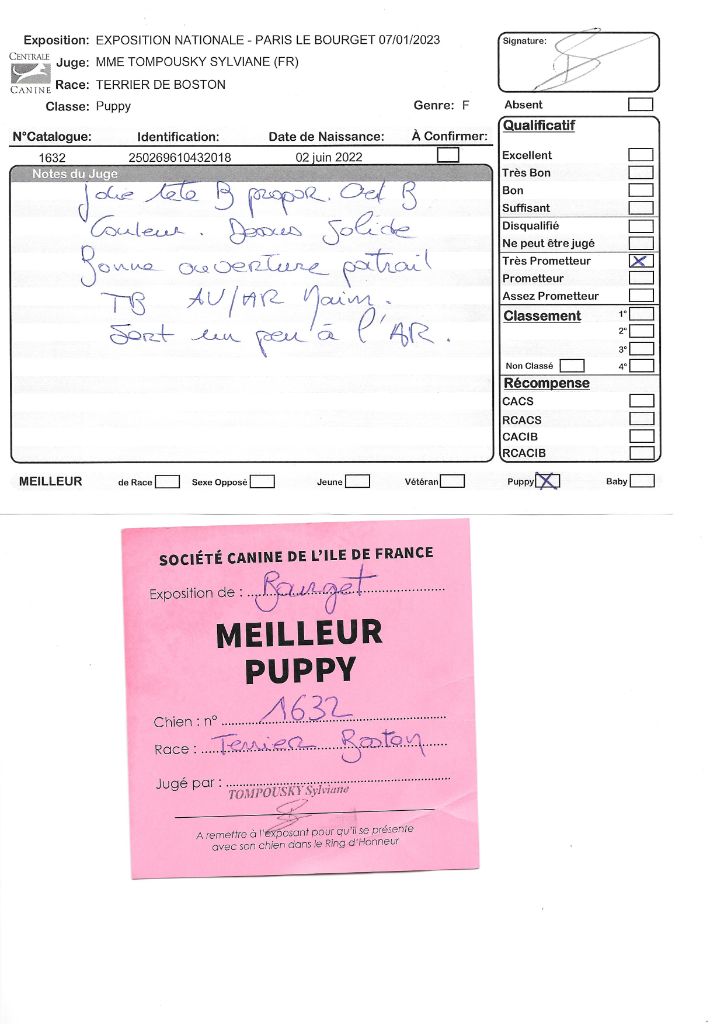 Exposition: EXPOSITION NATIONALE - PARIS LE BOURGET 07/01/2023
CENTRALE CANINE
Juge: MME TOMPOUSKY SYLVIANE (FR)
Race: TERRIER DE BOSTON
Classe: Puppy Genre: F
N°Catalogue: Identification: Date de Naissance: À Confirmer:
1632 250269610432018 02 juin 2022
Notes du Juge
Jolie tête B propor. Oeil B
Couleur. Dessus Solide
Bonne ouverture poitrail
TB AV/AR Main.
Sort un peu à l'AR.
Signature:
Absent
Qualificatif
Excellent
Très Bon
Bon
Suffisant
Disqualifié
Ne peut être jugé
Très Prometteur X
Prometteur
Assez Prometteur
Classement 1°
2°
3°
Non Classé 4°
Récompense
CACS
RCACS
CACIB
RCACIB
MEILLEUR de Race Sexe Opposé Jeune Vétéran Puppy X Baby
SOCIÉTÉ CANINE DE L'ILE DE FRANCE
Exposition de : Bourget
MEILLEUR
PUPPY
Chien : n° 1632
Race : Terrier Boston
Jugé par :
TOMPOUSKY Sylviane
A remettre à l'exposant pour qu'il se présente
avec son chien dans le Ring d'Honneur